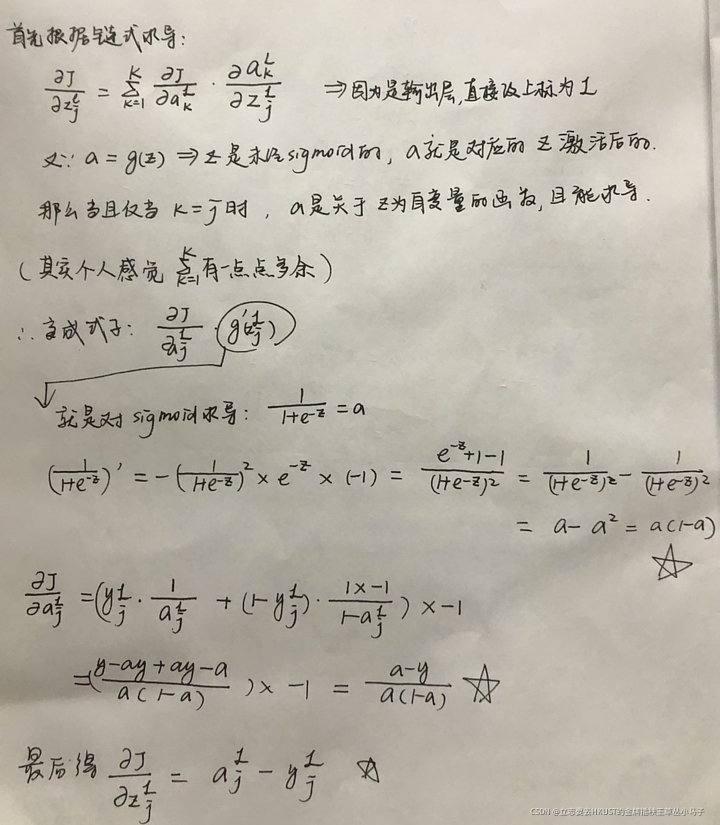 首先根据链式求导:
∂J/∂z_j^L = Σ_{k=1}^K ∂J/∂a_k^L · ∂a_k^L/∂z_j^L ⇒因为是输出层,直接改上标为L
又∵ a = g(z) ⇒ z是未经sigmoid的, a就是对应的 z 激活后的.
那么当且仅当 k=j 时, a是关于 z为自变量的函数, 且能求导.
(其实个人感觉 Σ_{k=1}^K 有一点点多余)
∴变成式子: ∂J/∂a_j^L · g'(z_j^L)
就是对 sigmoid求导: 1/(1+e^{-z}) = a
(1/(1+e^{-z}))' = -(1/(1+e^{-z}))^2 × e^{-z} × (-1) = (e^{-z}+1-1)/(1+e^{-z})^2 = 1/(1+e^{-z}) - 1/(1+e^{-z})^2
= a - a^2 = a(1-a)
∂J/∂a_j^L = (y_j^L · 1/a_j^L + (1-y_j^L) · (1×-1)/(1-a_j^L)) × -1
=((y-ay+ay-a)/(a(1-a))) × -1 = (a-y)/(a(1-a))
最后得 ∂J/∂z_j^L = a_j^L - y_j^L
CSDN @立志要去HKUST的金牌插秧王草丛小马子